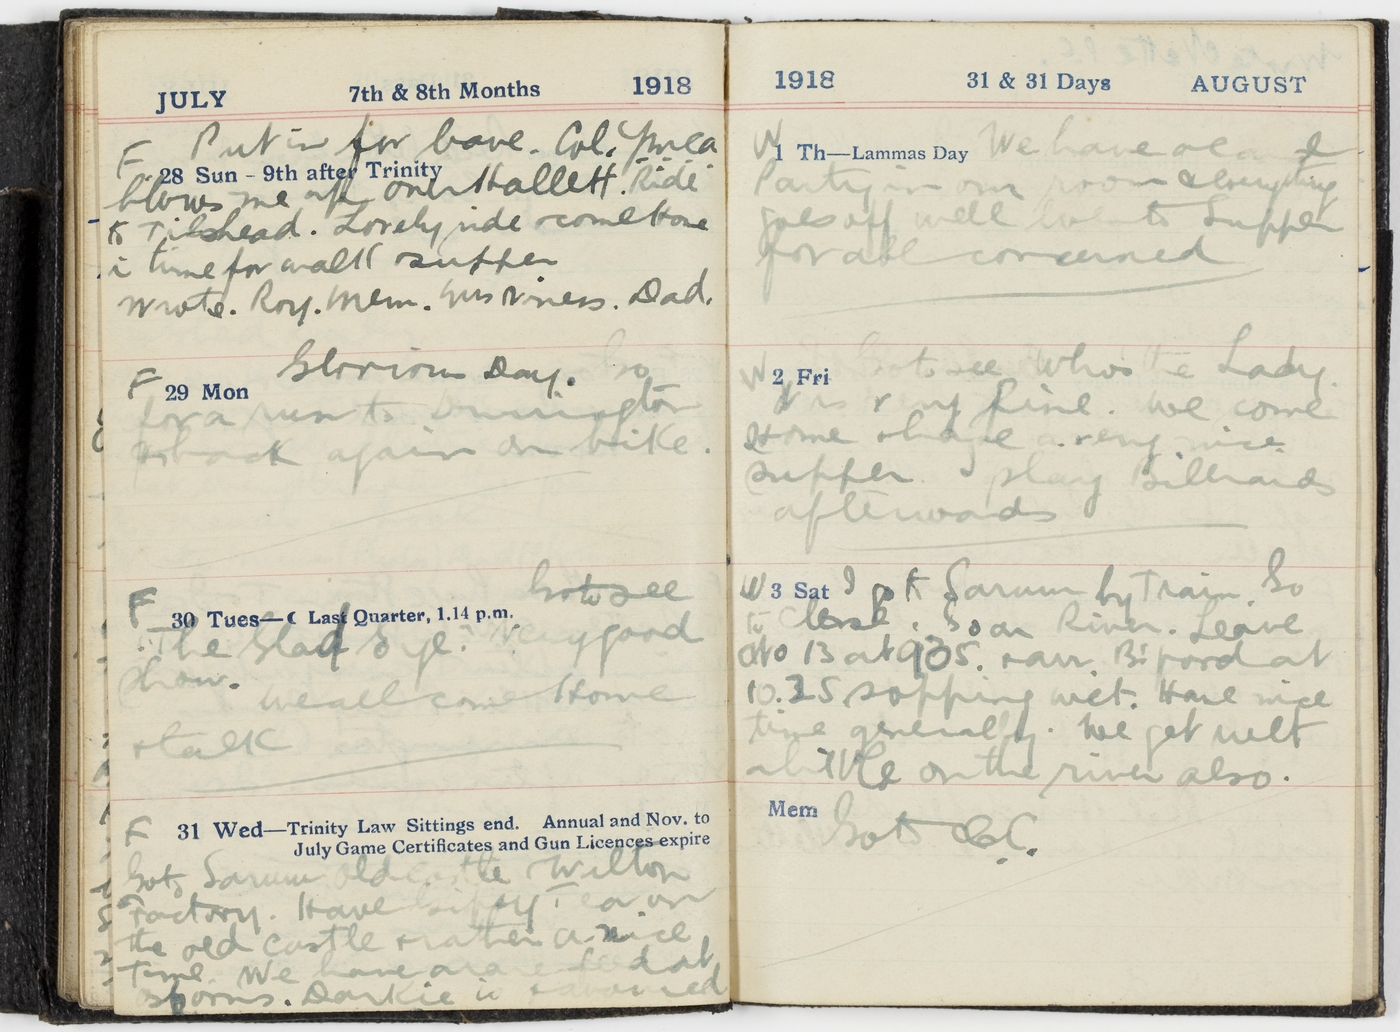 JULY 7th & 8th Months 1918
F Put in for leave. Col.
28 Sun - 9th after Trinity
blows me up over Hallett. Ride
to Tilshead. Lovely ride & come home
i time for walk & supper
Wrote. Roy. Mem. Dad.
F Glorious Day. Go
29 Mon
for a run to Durrington
& back again on bike.
F Go to see
30 Tues—☾ Last Quarter, 1.14 p.m.
"The Glad Eye." Very good
show.
we all come Home
& talk
F 31 Wed—Trinity Law Sittings end. Annual and Nov. to
July Game Certificates and Gun Licences expire
Go to Sarum old castle Wilton
Factory. Have Tea on
the old castle & rather a nice
time. We have a rare feed at
Osborns. Darkie is
1918 31 & 31 Days AUGUST
W 1 Th—Lammas Day We have a
Party in our room & everything
goes off well to Supper
for all concerned
W Go to see Who's the Lady.
2 Fri
It is very fine. We come
Home & have a very nice
supper. & play Billiards
afterwards
W 3 Sat I go to Sarum by Train. Go
to Close. Go on River. Leave
at 9.05. arr. at
10.35 sopping wet. Have nice
time generally. We get wet
a little on the river also.
Mem Go to